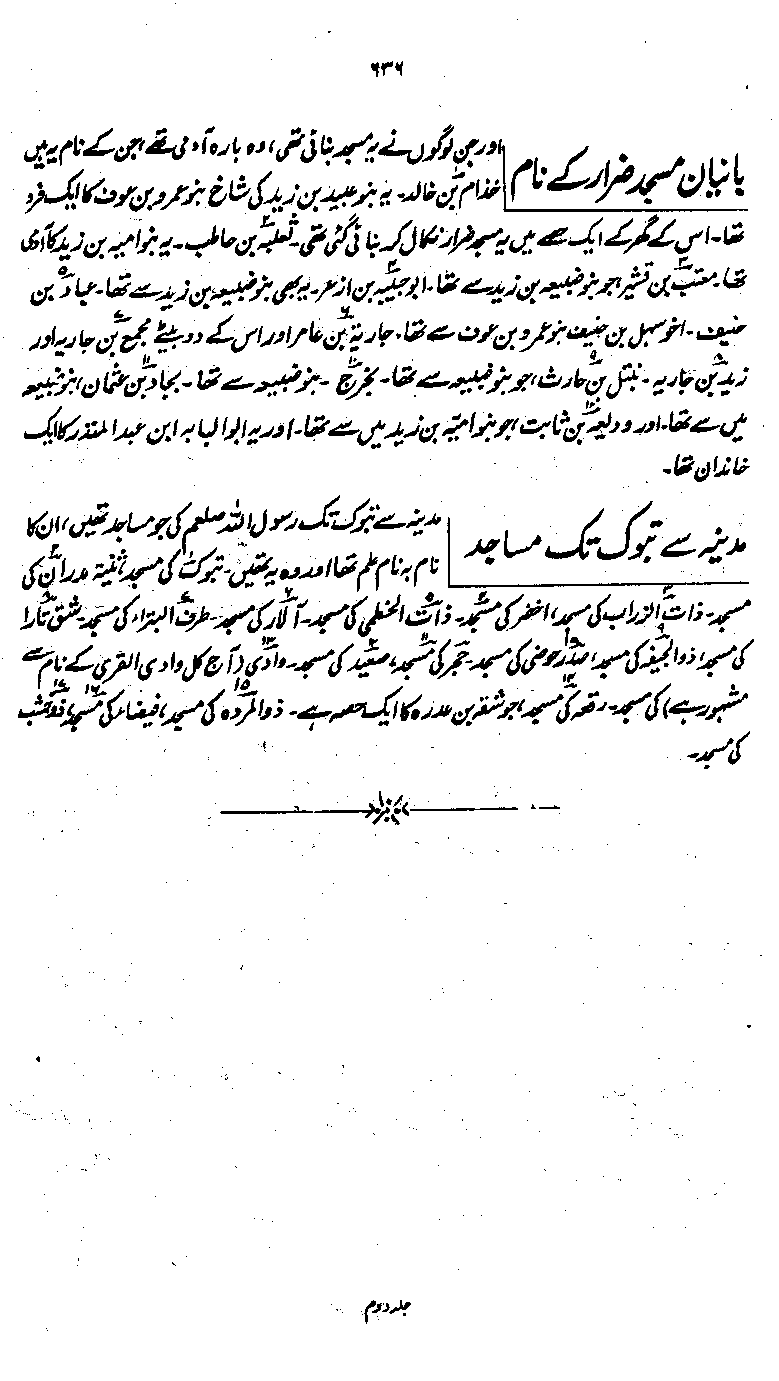 ۶۳۶
بانیان مسجد ضرار کے نام
اور جن لوگوں نے یہ مسجد بنائی تھی، وہ بارہ آدمی تھے، جن کے نام یہ ہیں
خذام بن خالد۔ یہ بنو عبید بن زید کی شاخ بنو عمرو بن عوف کا ایک فرد
تھا۔ اس کے گھر کے ایک حصے میں یہ مسجد ضرار نکال کر بنائی گئی تھی۔ ثعلبہ بن حاطب۔ یہ بنو امیہ بن زید کا آدمی
تھا۔ معتب بن قشیر، جو بنو ضبیعہ بن زید سے تھا۔ ابو حبیبہ بن ازعر۔ یہ بھی بنو ضبیعہ بن زید سے تھا۔ عباد بن
حنیف۔ اخو سہل بن حنیف بنو عمرو بن عوف سے تھا۔ جاریہ بن عامر اور اس کے دو بیٹے مجمع بن جاریہ اور
زید بن جاریہ۔ نبتل بن حارث، جو بنو ضبیعہ سے تھا۔ بخرج۔ بنو ضبیعہ سے تھا۔ بجاد بن عثمان، بنو ضبیعہ
میں سے تھا۔ اور ودیعہ بن ثابت، جو بنو امیہ بن زید میں سے تھا۔ اور یہ ابو البابہ ابن عبد المنذر کا ایک
خاندان تھا۔
مدینہ سے تبوک تک مساجد
مدینہ سے تبوک تک رسول اللہ صلعم کی جو مساجد تھیں، ان کا
نام بہ نام علم تھا اور وہ یہ تھیں۔ تبوک کی مسجد، ثنیۃ مدران کی
مسجد۔ ذات الزراب کی مسجد، اخضر کی مسجد۔ ذات الخطمی کی مسجد۔ آلار کی مسجد۔ طرف البتراء کی مسجد۔ شق تارا
کی مسجد، ذوالجیفہ کی مسجد، صدر حوضی کی مسجد۔ حجر کی مسجد، صعید کی مسجد۔ وادی (آج کل وادی القری کے نام سے
مشہور ہے) کی مسجد۔ رقعہ کی مسجد، جو شقہ بن عذرہ کا ایک حصہ ہے۔ ذوالمردہ کی مسجد، فیفاء کی مسجد، ذو خشب
کی مسجد۔
جلد دوم